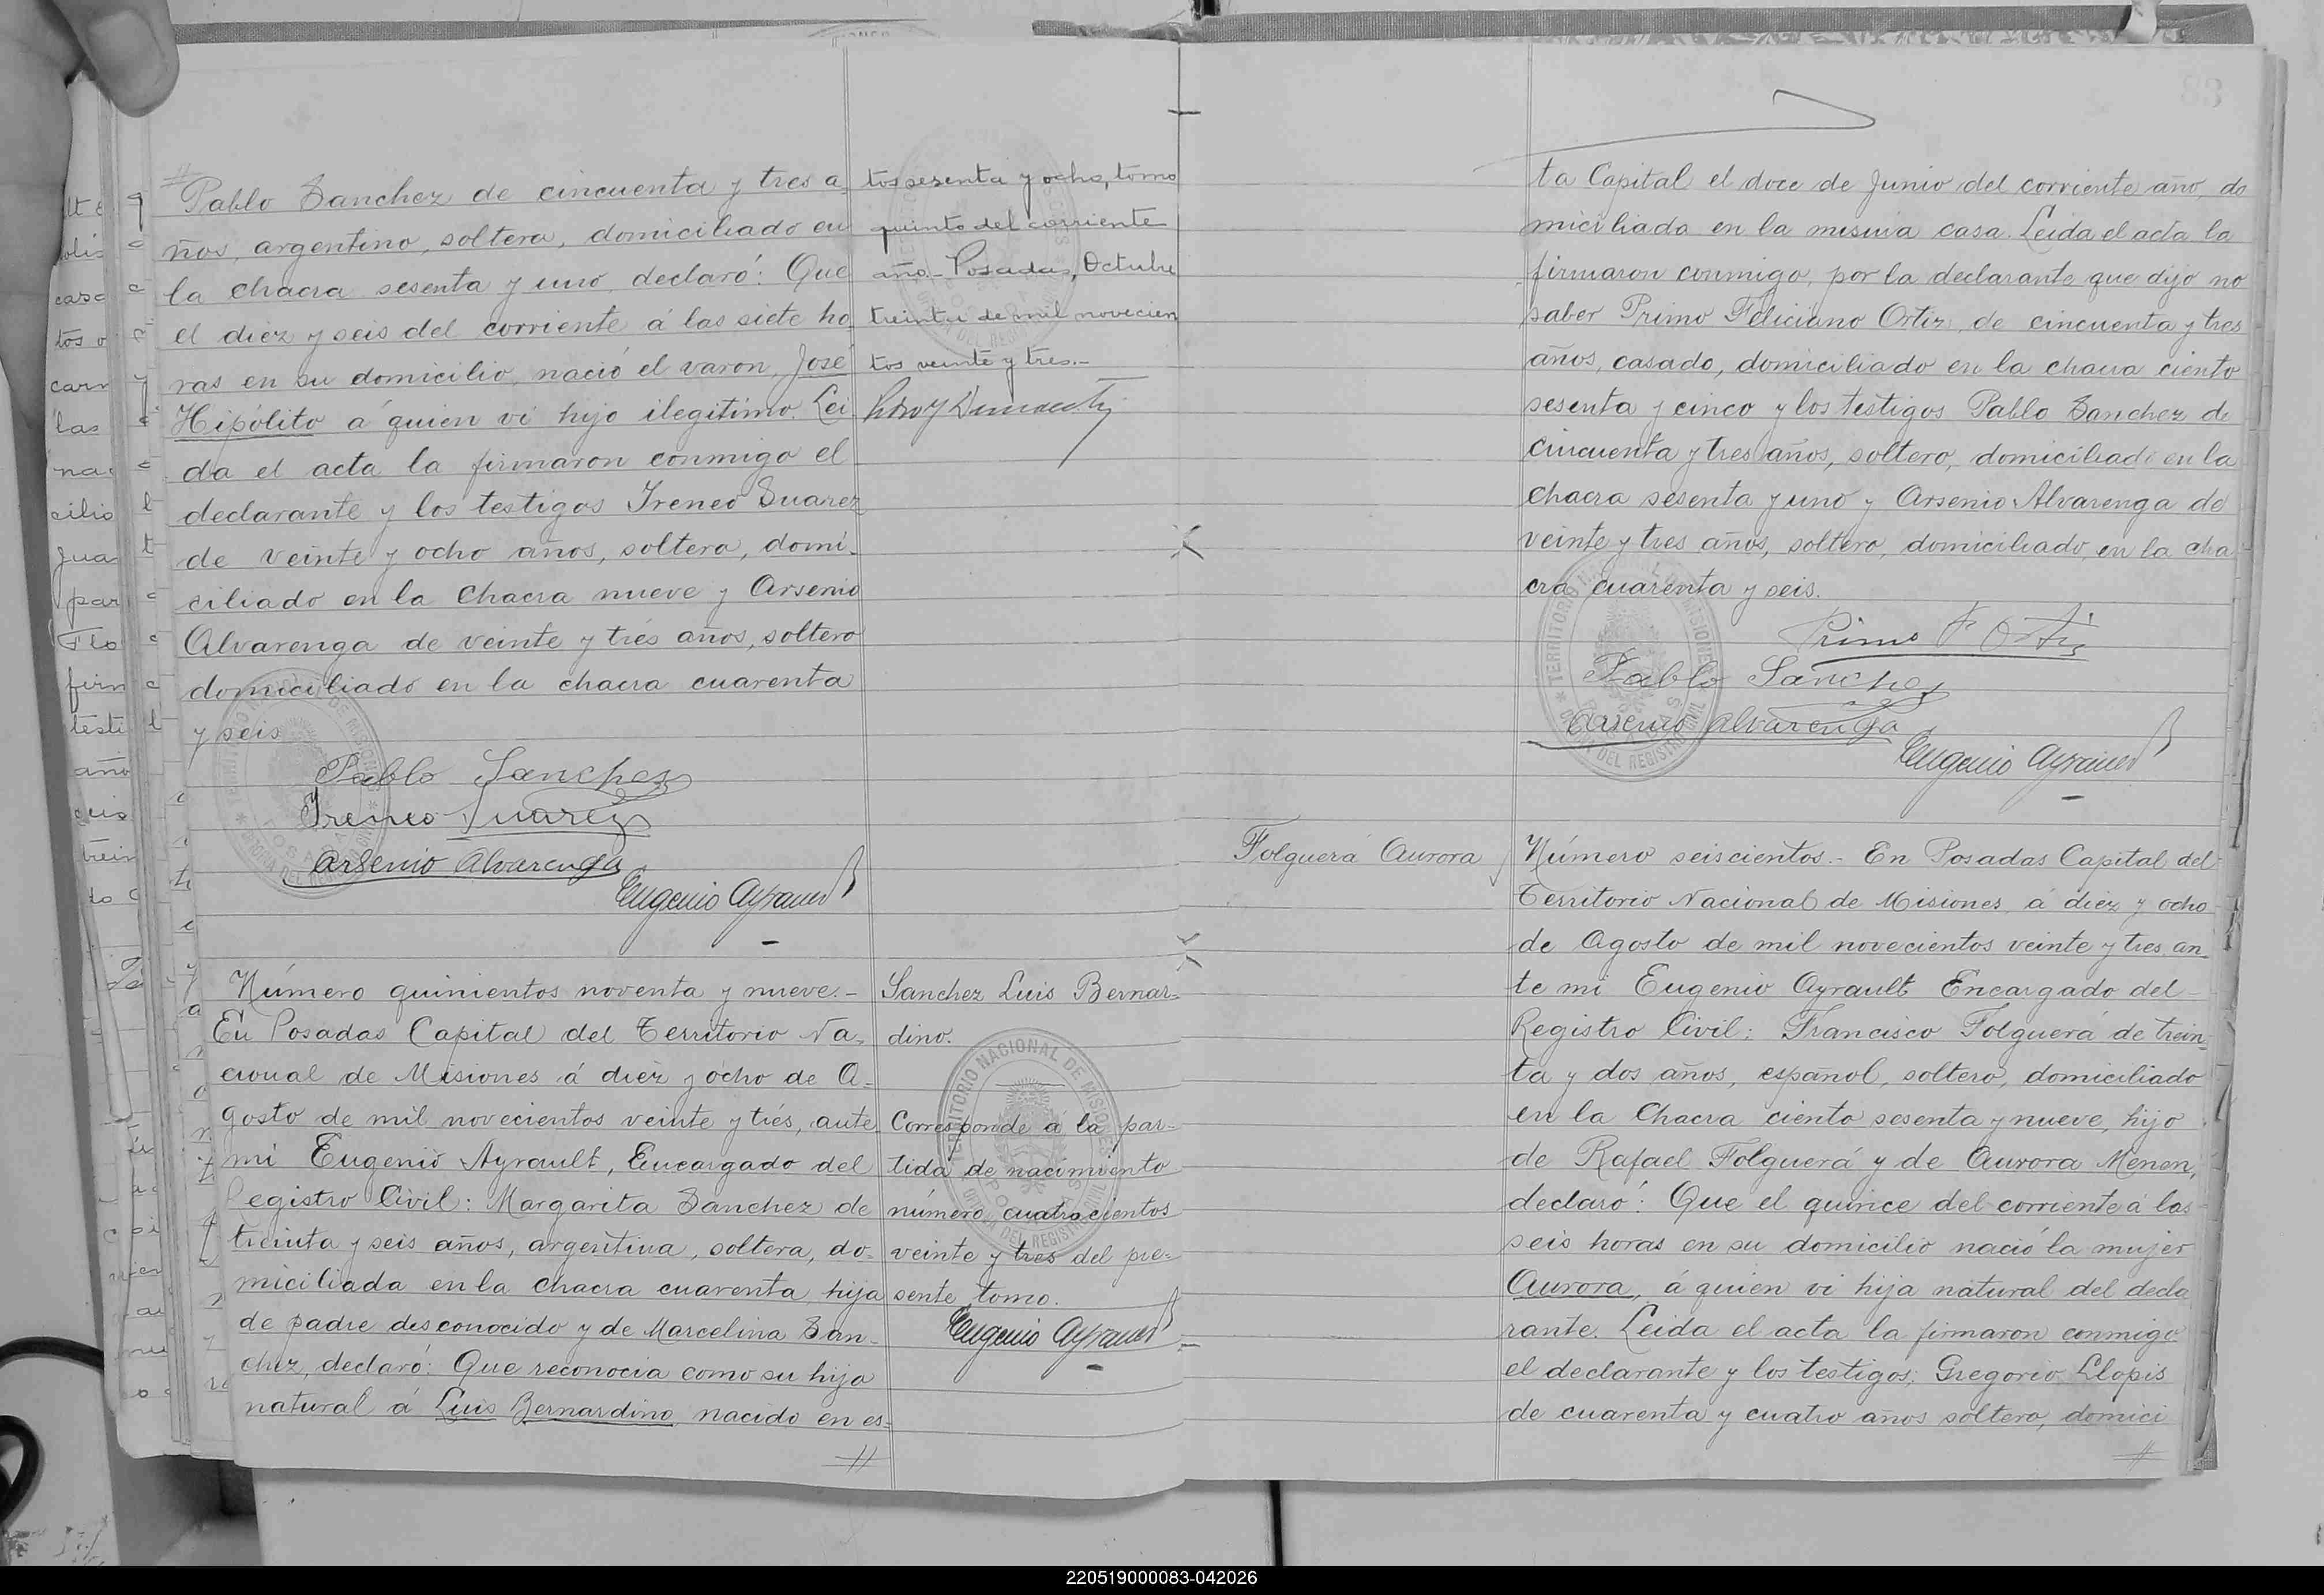 Pablo Sanchez de cincuenta y tres a
ños, argentino, soltero, domiciliado en
la chacra sesenta y uno, declaró: Que
el diez y seis del corriente á las siete ho
ras en su domicilio, nació el varon, José
Hipólito á quien vi hijo ilegitimo. Lei
da el acta la firmaron conmigo el
declarante y los testigos Ireneo Suarez
de veinte y ocho años, soltero, domi-
ciliado en la chacra nueve y Arsenio
Alvarenga de veinte y trés años, soltero
domiciliado en la chacra cuarenta
y seis
Pablo Sanchez
Ireneo Suarez
Arsenio Alvarenga
Eugenio Ayrault
tos sesenta y ocho, tomo
quinto del corriente
año.- Posadas, Octubre
treinta de mil novecien
tos veinte y tres.-
Número quinientos noventa y nueve.-
En Posadas Capital del Territorio Na-
cional de Misiones á diez y ocho de A-
gosto de mil novecientos veinte y trés, ante
mi Eugenio Ayrault, Encargado del
Registro Civil: Margarita Sanchez de
treinta y seis años, argentina, soltera, do-
miciliada en la chacra cuarenta, hija
de padre desconocido y de Marcelina San-
chez, declaró: Que reconocia como su hijo
natural á Luis Bernardino nacido en es-
Sanchez Luis Bernar-
dino.
Corresponde á la par-
tida de nacimiento
número cuatrocientos
veinte y tres del pre-
sente tomo.
Eugenio Ayrault
ta Capital el doce de Junio del corriente año, do
miciliado en la misma casa. Leida el acta la
firmaron conmigo, por la declarante que dijo no
saber Primo Feliciano Ortiz, de cincuenta y tres
años, casado, domiciliado en la chacra ciento
sesenta y cinco y los testigos Pablo Sanchez de
cincuenta y tres años, soltero, domiciliado en la
chacra sesenta y uno y Arsenio Alvarenga de
veinte y tres años, soltero, domiciliado en la cha
cra cuarenta y seis.
Primo F Ortiz
Pablo Sanchez
Arsenio Alvarenga
Eugenio Ayrault
Folguerá Aurora
Número seiscientos.- En Posadas Capital del
Territorio Nacional de Misiones, á diez y ocho
de Agosto de mil novecientos veinte y tres an
te mi Eugenio Ayrault Encargado del
Registro Civil: Francisco Folguerá de trein
ta y dos años, español, soltero, domiciliado
en la Chacra ciento sesenta y nueve, hijo
de Rafael Folguerá y de Aurora Menen,
declaró: Que el quince del corriente á las
seis horas en su domicilio nació la mujer
Aurora, á quien vi hija natural del decla
rante. Leida el acta la firmaron conmigo
el declarante y los testigos: Gregorio Llopis
de cuarenta y cuatro años soltero, domici
220519000083-042026